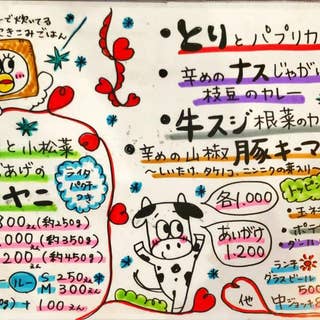 ーで炊いてる
たきこみごはん
と小松菜
あげの
ヤニ
ライタ
パクチ
つき
300ユ(約250g)
000ユ(約350g)
200ユ(約450g)
ルー S 250ユ
M 300ユ
)+100ユ
・とりとパプリカ
・辛めのナスじゃが
枝豆のカレー
・牛スジ根菜のカ
・辛めの山椒豚キーマ
～しいたけ、タケノコ、ニンニクの葉入り～
各1,000
あいがけ
1,200
トッピン
ポテ
ダール
ランチ
グラスビール
500
他 中ジョッキ